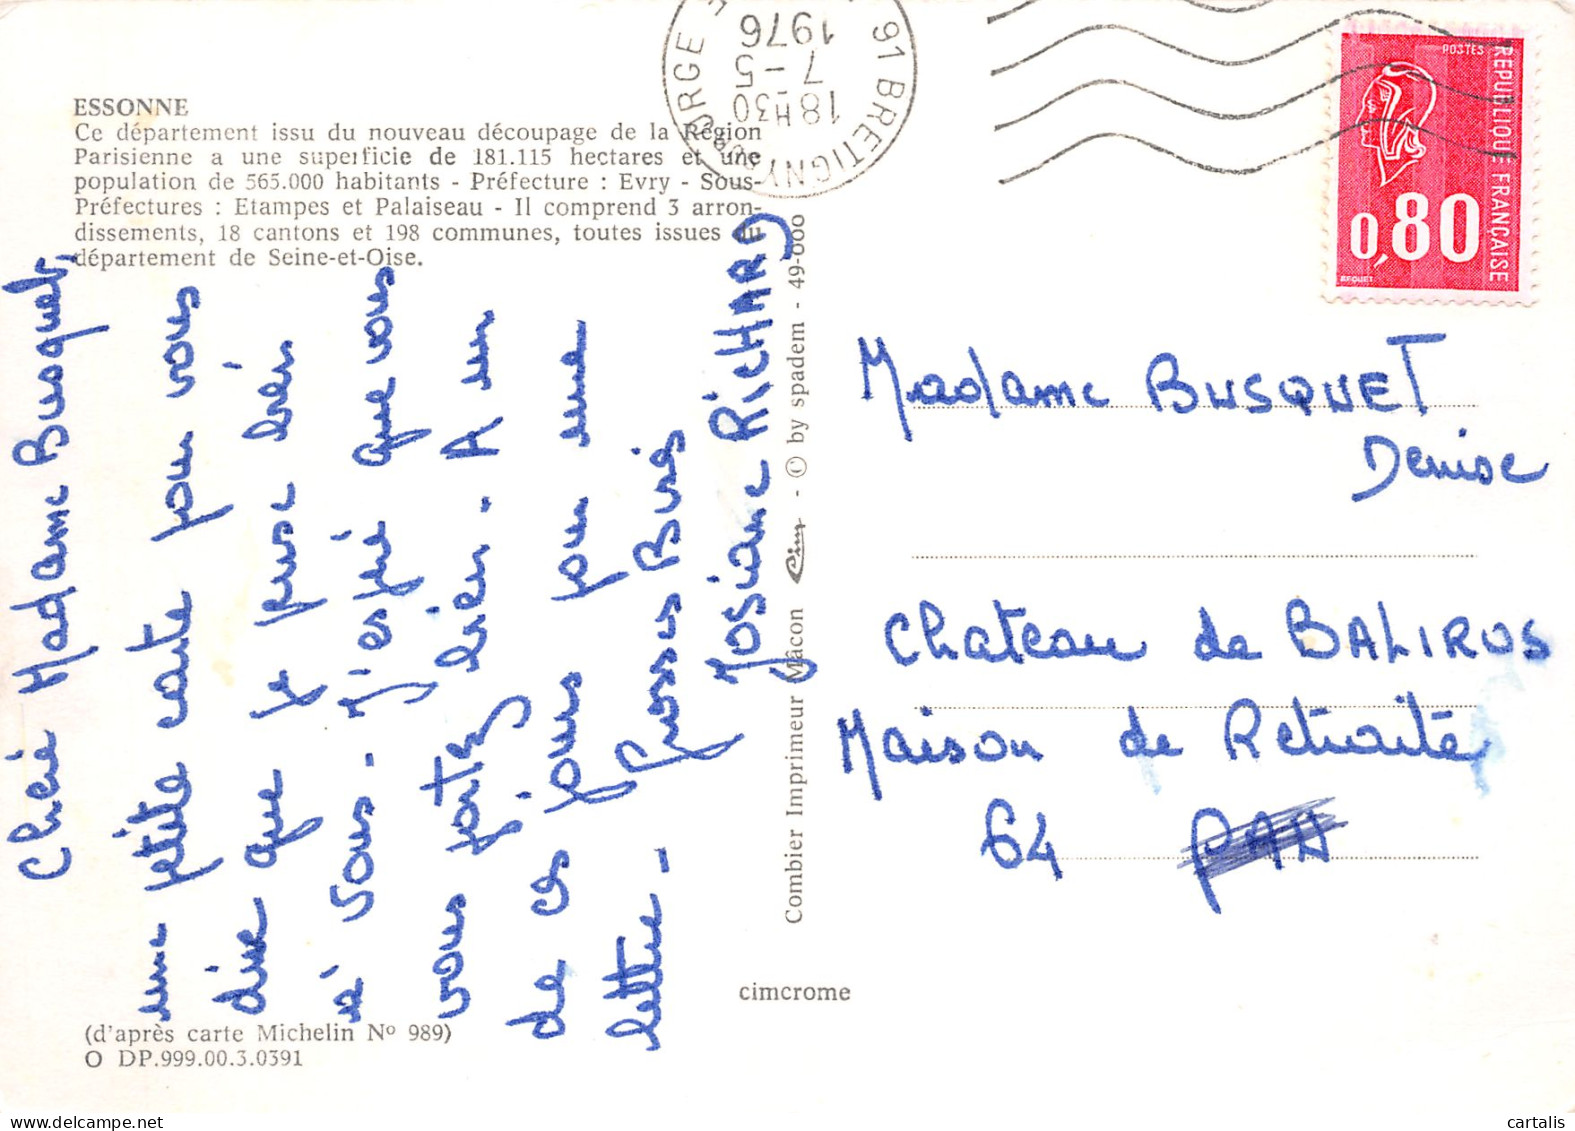 ESSONNE
Ce département issu du nouveau découpage de la Région
Parisienne a une superficie de 181.115 hectares et une
population de 565.000 habitants - Préfecture : Evry - Sous-
Préfectures : Etampes et Palaiseau - Il comprend 3 arron-
dissements, 18 cantons et 198 communes, toutes issues du
département de Seine-et-Oise.
Chère Madame Busquet,
une petite carte pour vous
dire que je pense bien
à vous - J'espère que vous
vous portez bien. A un
de ces jours pour une
lettre - Grosses Bises
Josiane RICHARD
(d'après carte Michelin Nº 989)
O DP.999.00.3.0391
cimcrome
Combier Imprimeur Mâcon Cim - © by spadem - 49-000
91 BRETIGNY ORGE
18H30
7-5
1976
POSTES
REPUBLIQUE FRANÇAISE
0,80
BEQUET
Madame BUSQUET
Denise
Chateau de BALIROS
Maison de Retraite
64 PAU
cartalis